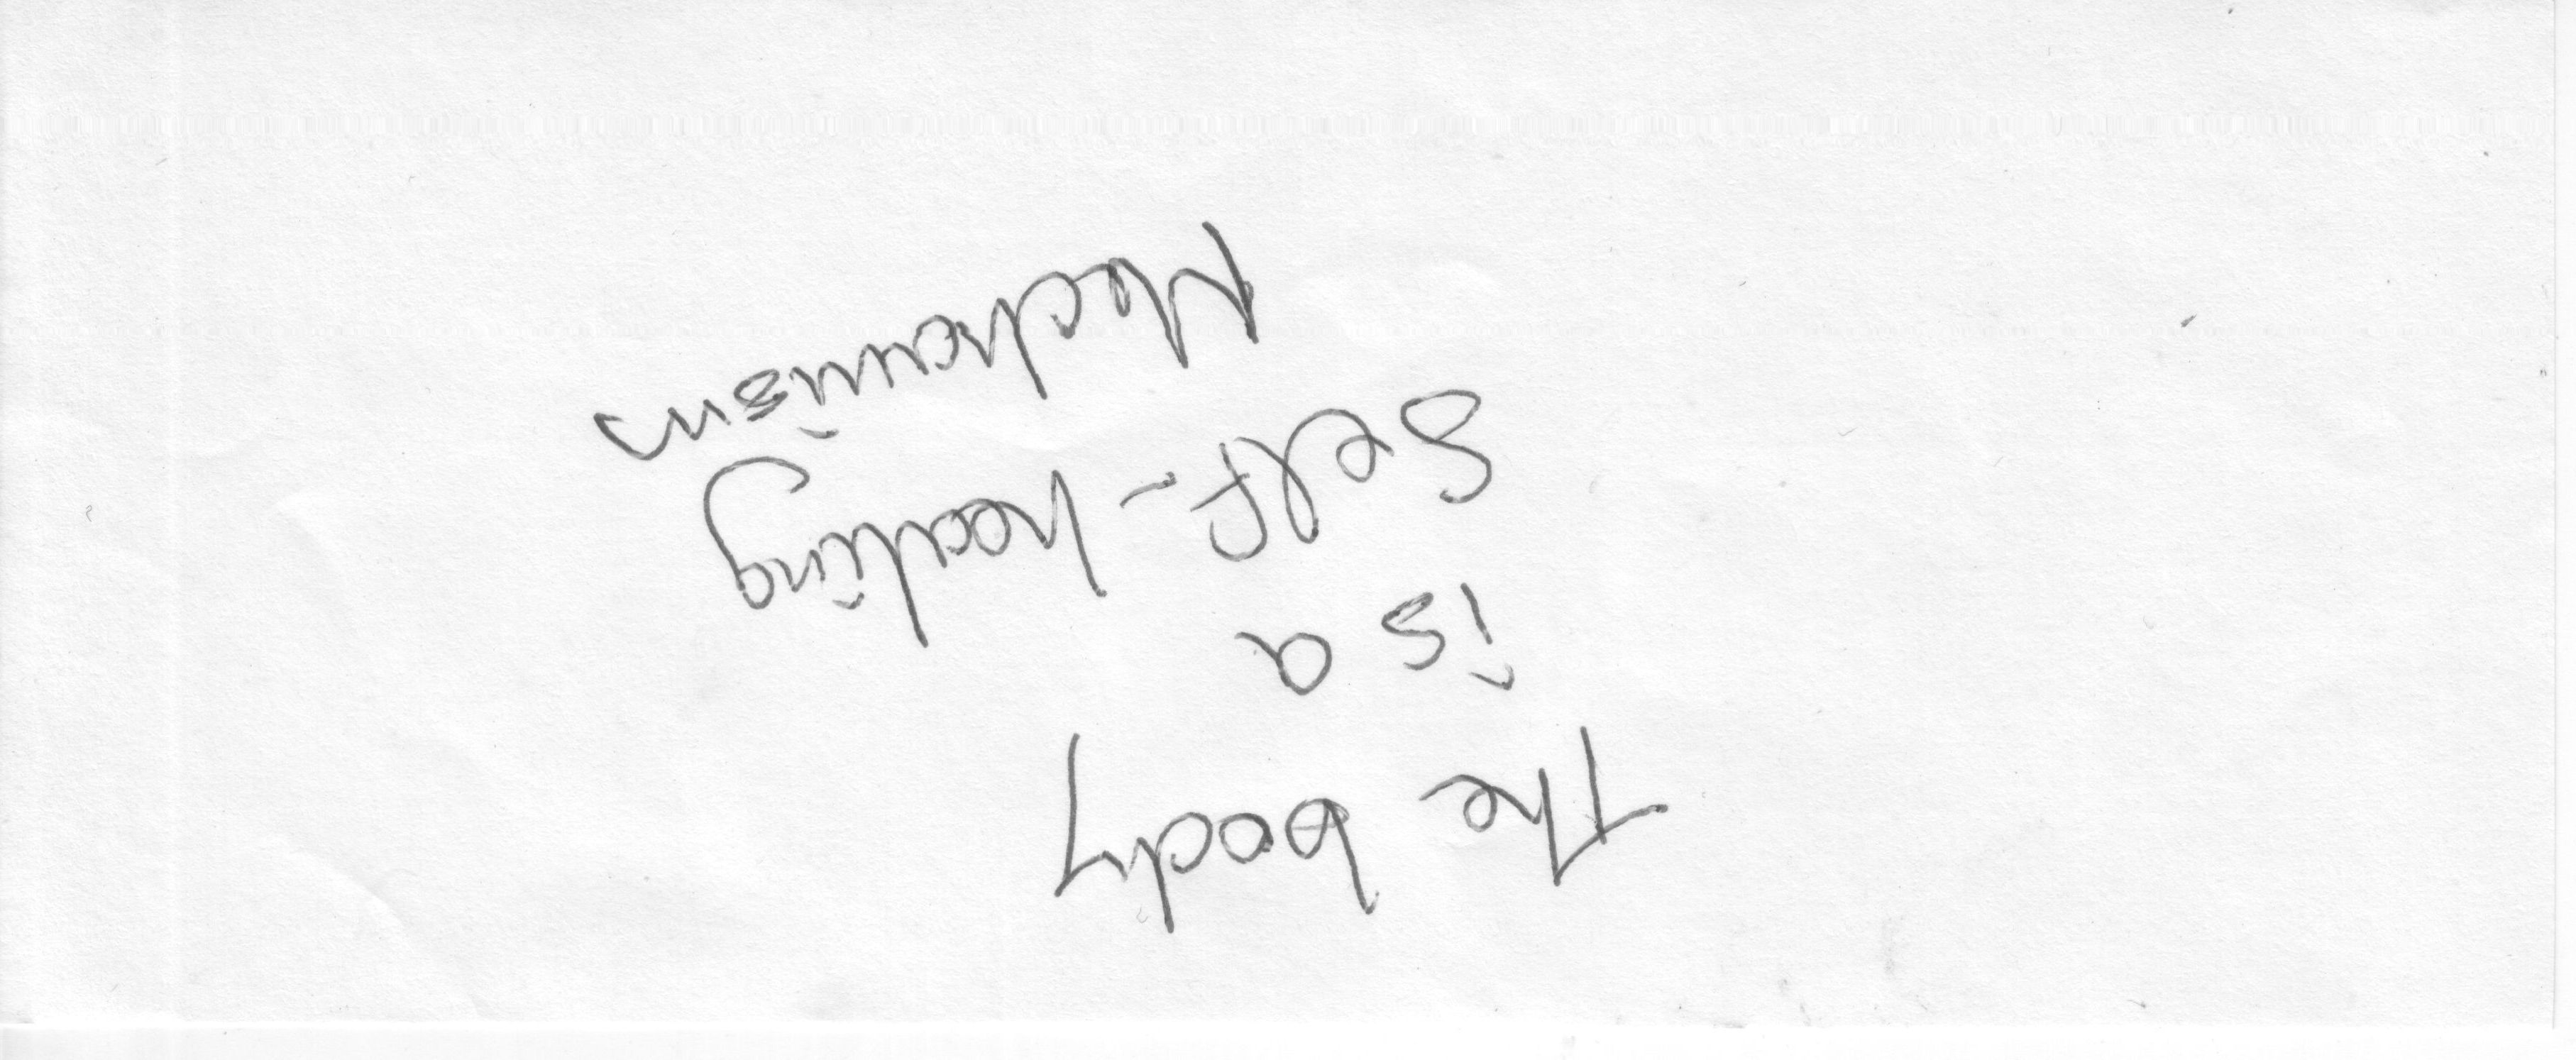 The body
is a
Self-healing
Mechanism